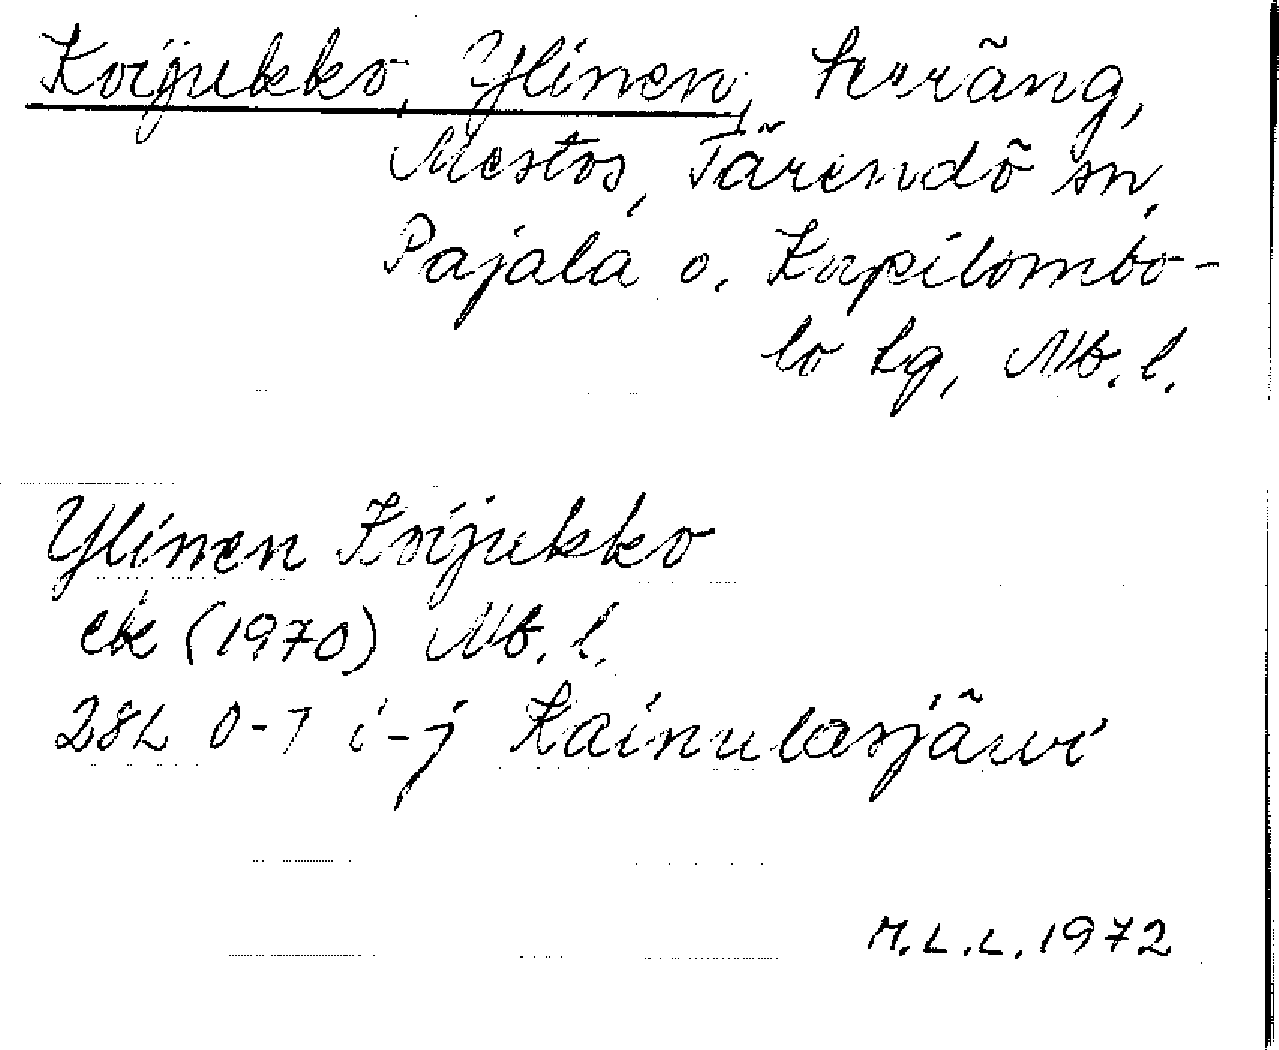 Koijukko, Ylinen, terräng,
Mestos, Tärendö sn,
Pajala o. Korpilombo-
lo tg, Nb. l.
Ylinen Koijukko
ek (1970) Nb. l.
28L 0-7 i-j Kainulasjärvi
M.L.L. 1972